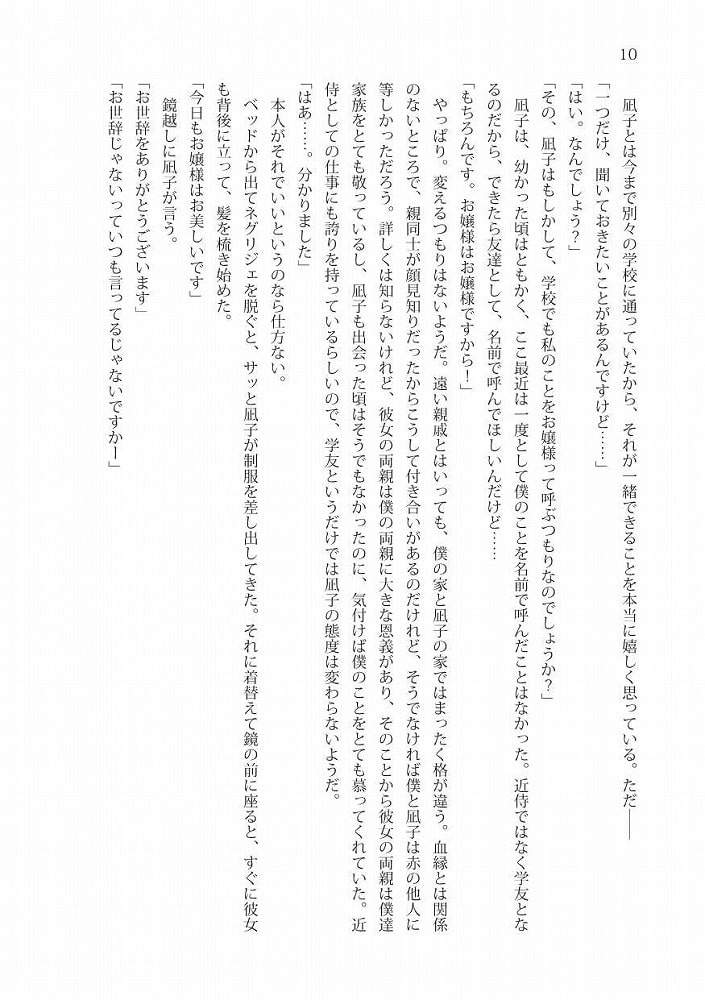 10
凪子とは今まで別々の学校に通っていたから、それが一緒できることを本当に嬉しく思っている。ただ――
「一つだけ、聞いておきたいことがあるんですけど……」
「はい。なんでしょう？」
「その、凪子はもしかして、学校でも私のことをお嬢様って呼ぶつもりなのでしょうか？」
凪子は、幼かった頃はともかく、ここ最近は一度として僕のことを名前で呼んだことはなかった。近侍ではなく学友とな
るのだから、できたら友達として、名前で呼んでほしいんだけど……
「もちろんです。お嬢様はお嬢様ですから！」
やっぱり。変えるつもりはないようだ。遠い親戚とはいっても、僕の家と凪子の家ではまったく格が違う。血縁とは関係
のないところで、親同士が顔見知りだったからこうして付き合いがあるのだけれど、そうでなければ僕と凪子は赤の他人に
等しかっただろう。詳しくは知らないけれど、彼女の両親は僕の両親に大きな恩義があり、そのことから彼女の両親は僕達
家族をとても敬っているし、凪子も出会った頃はそうでもなかったのに、気付けば僕のことをとても慕ってくれていた。近
侍としての仕事にも誇りを持っているらしいので、学友というだけでは凪子の態度は変わらないようだ。
「はあ……。分かりました」
本人がそれでいいというのなら仕方ない。
ベッドから出てネグリジェを脱ぐと、サッと凪子が制服を差し出してきた。それに着替えて鏡の前に座ると、すぐに彼女
も背後に立って、髪を梳き始めた。
「今日もお嬢様はお美しいです」
鏡越しに凪子が言う。
「お世辞をありがとうございます」
「お世辞じゃないっていつも言ってるじゃないですかー」